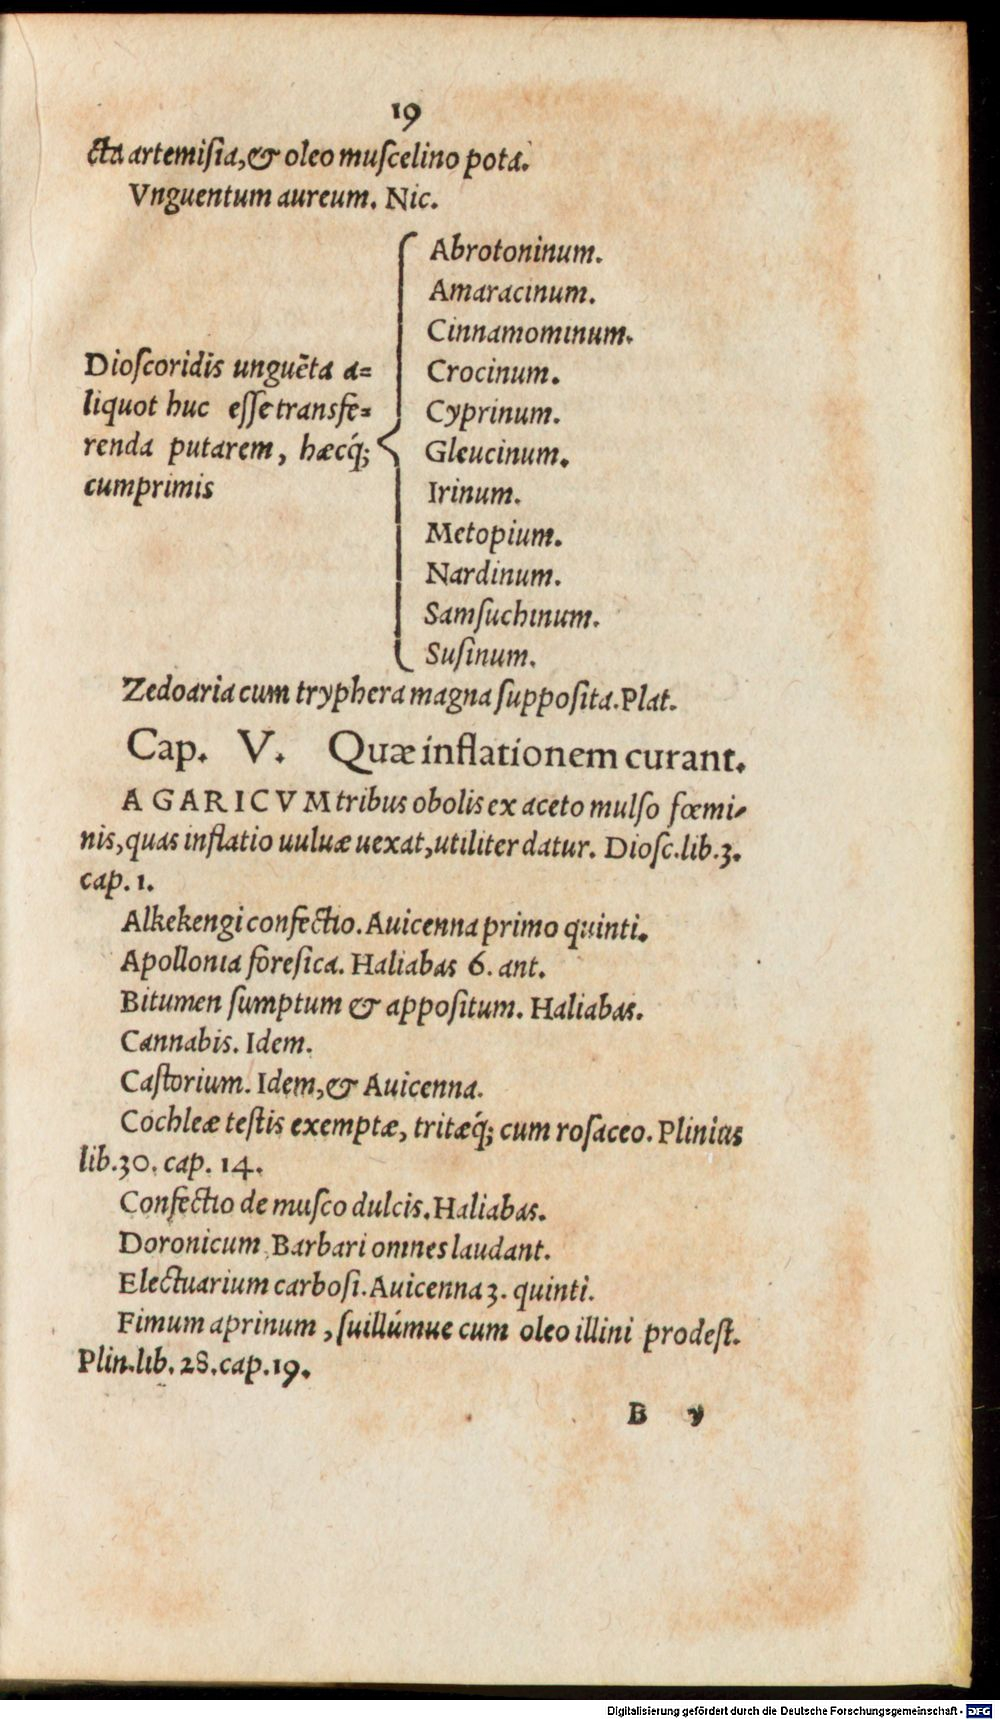 19
cta artemisia, & oleo muscelino pota.
Vnguentum aureum. Nic.
Dioſcoridis unguẽta a=
liquot huc eſſe transfe=
renda putarem, hæcq́;
cumprimis
Abrotoninum.
Amaracinum.
Cinnamominum.
Crocinum.
Cyprinum.
Gleucinum.
Irinum.
Metopium.
Nardinum.
Samſuchinum.
Suſinum.
Zedoaria cum tryphera magna ſuppoſita. Plat.
Cap. V. Quæ inflationem curant.
AGARICVM tribus obolis ex aceto mulſo fœmi-
nis, quas inflatio uuluæ uexat, utiliter datur. Dioſc. lib. 3.
cap. 1.
Alkekengi confectio. Auicenna primo quinti.
Apollonia foreſica. Haliabas 6. ant.
Bitumen ſumptum & appoſitum. Haliabas.
Cannabis. Idem.
Caſtorium. Idem, & Auicenna.
Cochleæ teſtis exemptæ, tritæq́; cum roſaceo. Plinius
lib. 30. cap. 14.
Confectio de muſco dulcis. Haliabas.
Doronicum Barbari omnes laudant.
Electuarium carboſi. Auicenna 3. quinti.
Fimum aprinum, ſuillúmue cum oleo illini prodeſt.
Plin. lib. 28. cap. 19.
B y
Digitalisierung gefördert durch die Deutsche Forschungsgemeinschaft - DFG